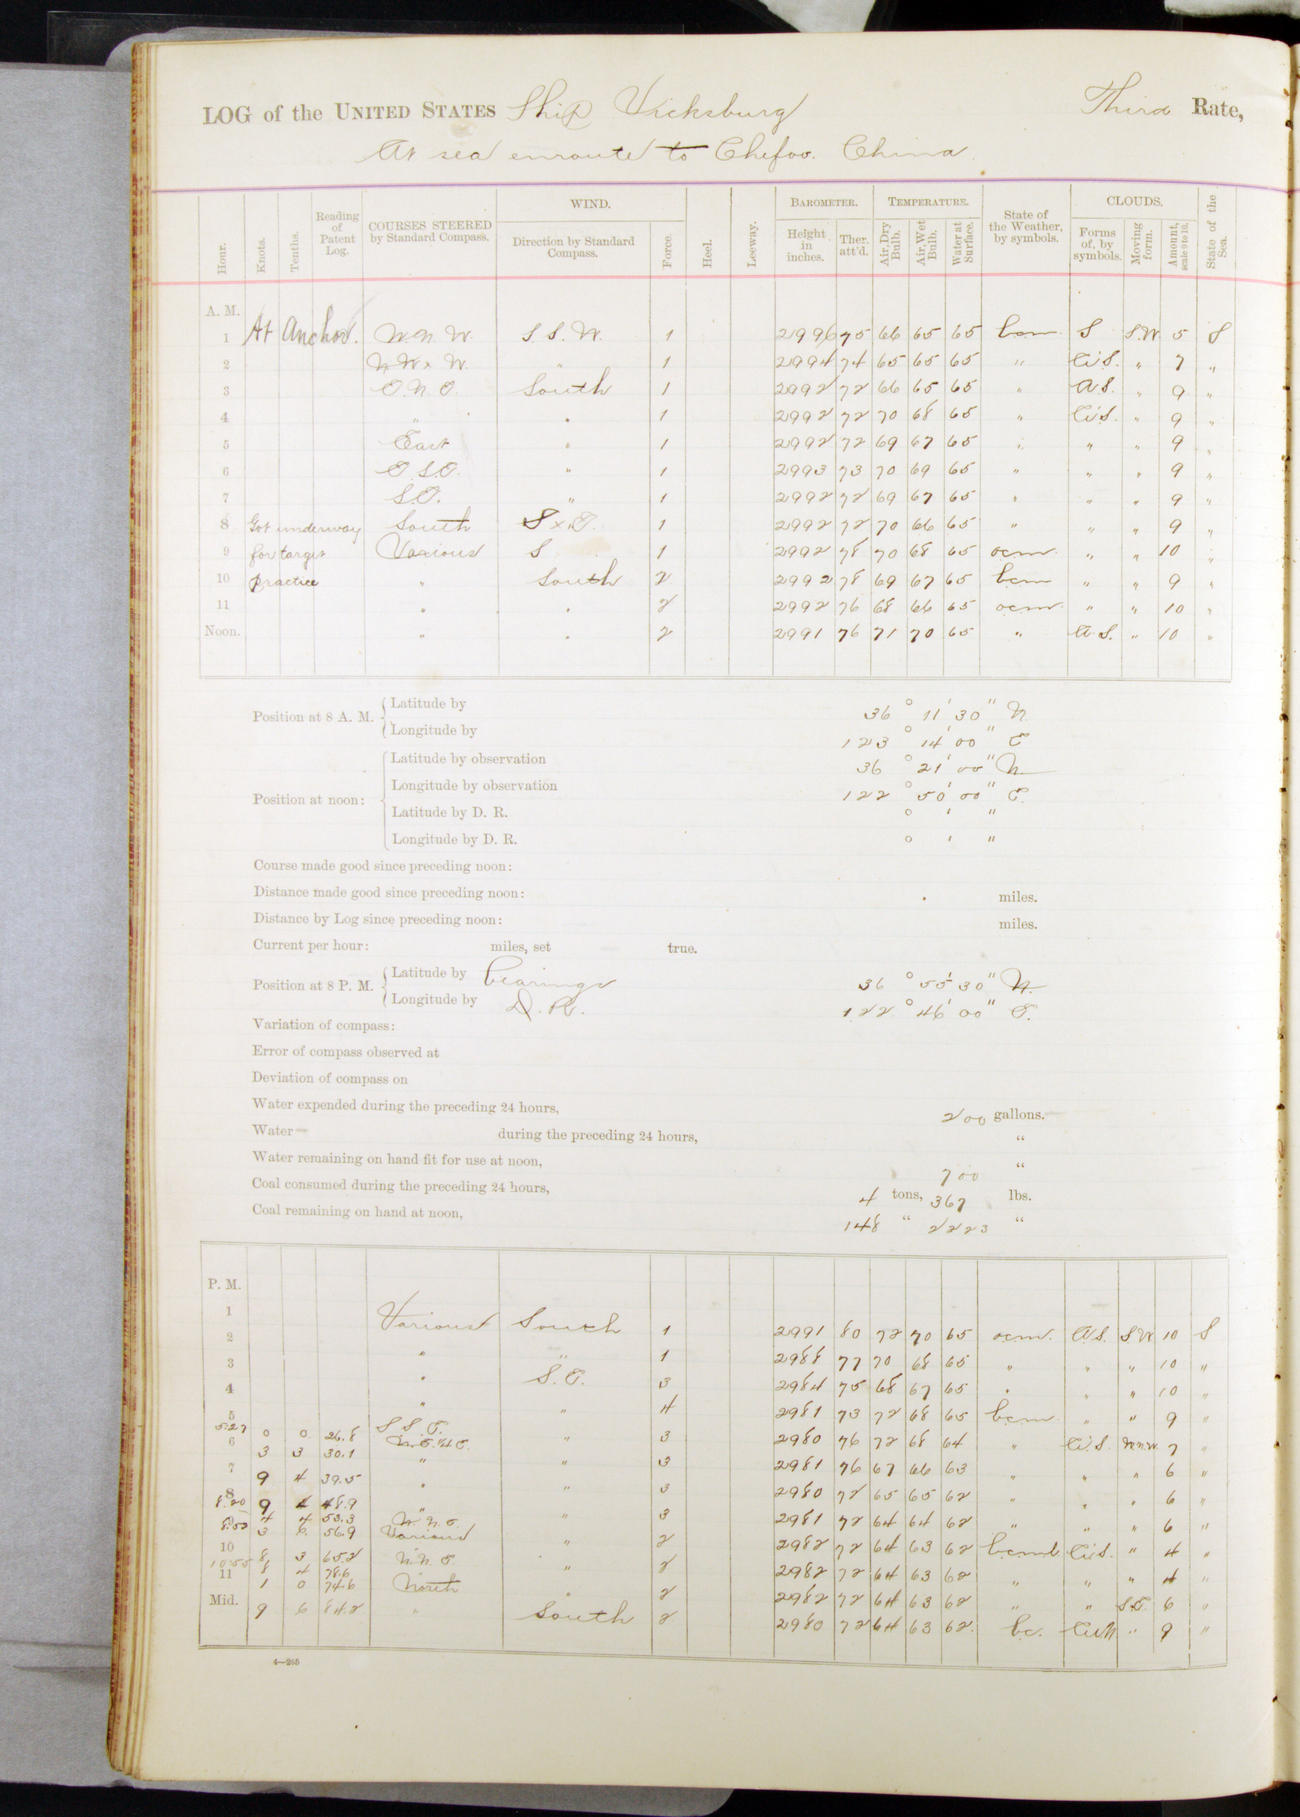 LOG of the UNITED STATES Ship Vicksburg Third Rate,
At sea enroute to Chefoo. China
Hour. Knots. Tenths. Reading of Patent Log. COURSES STEERED by Standard Compass. WIND. Direction by Standard Compass. Force. Heel. Leeway. BAROMETER. Height in inches. Ther. att'd. TEMPERATURE. Air, Dry Bulb. Air, Wet Bulb. Water at Surface. State of the Weather, by symbols. CLOUDS. Forms of, by symbols. Moving form. Amount, scale 0 to 10. State of the Sea.
A. M.
1 At Anchor. W.N.W. S.S.W. 1 2996 75 66 65 65 bcm S S.W. 5 S
2 N.W. x W. " 1 2994 74 65 65 65 " Ci.S. " 7 "
3 E.N.E. South 1 2992 72 66 65 65 " A.S. " 9 "
4 " " 1 2992 72 70 68 65 " Ci.S. " 9 "
5 East " 1 2992 72 69 67 65 " " " 9 "
6 E.S.E. " 1 2993 73 70 69 65 " " " 9 "
7 S.E. " 1 2992 72 69 67 65 " " " 9 "
8 Got underway South S x E. 1 2992 72 70 66 65 " " " 9 "
9 for target Various S 1 2992 78 70 68 65 ocm " " 10 "
10 practice " South 2 2992 78 69 67 65 bcm " " 9 "
11 " " 2 2992 76 68 66 65 ocm " " 10 "
Noon. " " 2 2991 76 71 70 65 " A.S. " 10 "
Position at 8 A. M. Latitude by 36 ° 11 ' 30 " N.
Longitude by 123 ° 14 ' 00 " E
Position at noon: Latitude by observation 36 ° 21 ' 00 " N.
Longitude by observation 122 ° 50 ' 00 " E.
Latitude by D. R. ° ' "
Longitude by D. R. ° ' "
Course made good since preceding noon:
Distance made good since preceding noon: . miles.
Distance by Log since preceding noon: miles.
Current per hour: miles, set true.
Position at 8 P. M. Latitude by bearings 36 ° 55 ' 30 " N.
Longitude by D.R. 122 ° 46 ' 00 " E.
Variation of compass:
Error of compass observed at
Deviation of compass on
Water expended during the preceding 24 hours, 200 gallons.
Water during the preceding 24 hours, "
Water remaining on hand fit for use at noon, 700 "
Coal consumed during the preceding 24 hours, 4 tons, 367 lbs.
Coal remaining on hand at noon, 148 " 2223 "
P. M.
1 Various South 1 2991 80 72 70 65 ocm. A.S. S.W 10 S
2 " " 1 2988 77 70 68 65 " " " 10 "
3 " S.E. 3 2984 75 68 67 65 " " " 10 "
4 " " 4 2981 73 72 68 65 bcm " " 9 "
5 S.S.E. " 3 2980 76 72 68 64 " Ci.S. W.N.W. 7 "
5.27 0 0 26.8
6 3 3 30.1 " 3 2981 76 67 66 63 " " " 6 "
7 9 4 39.5 " " 3 2980 72 65 65 62 " " " 6 "
8 9 4 48.9 " " 3 2981 72 64 64 62 " " " 6 "
8.20 4 4 53.3 N.N.E.
8.50 3 6 56.9 Various " 2 2982 72 64 63 62 Ci.S. " 4 "
10 8 3 65.2 N.N.E. " 2 2982 72 64 63 62 " " " 4 "
10.55 8 4
11 1 0 74.6 North " 2 2982 72 64 63 62 " " S.E. 6 "
Mid. 9 6 84.2 " South 2 2980 72 64 63 62 bc. 9 "
4—265